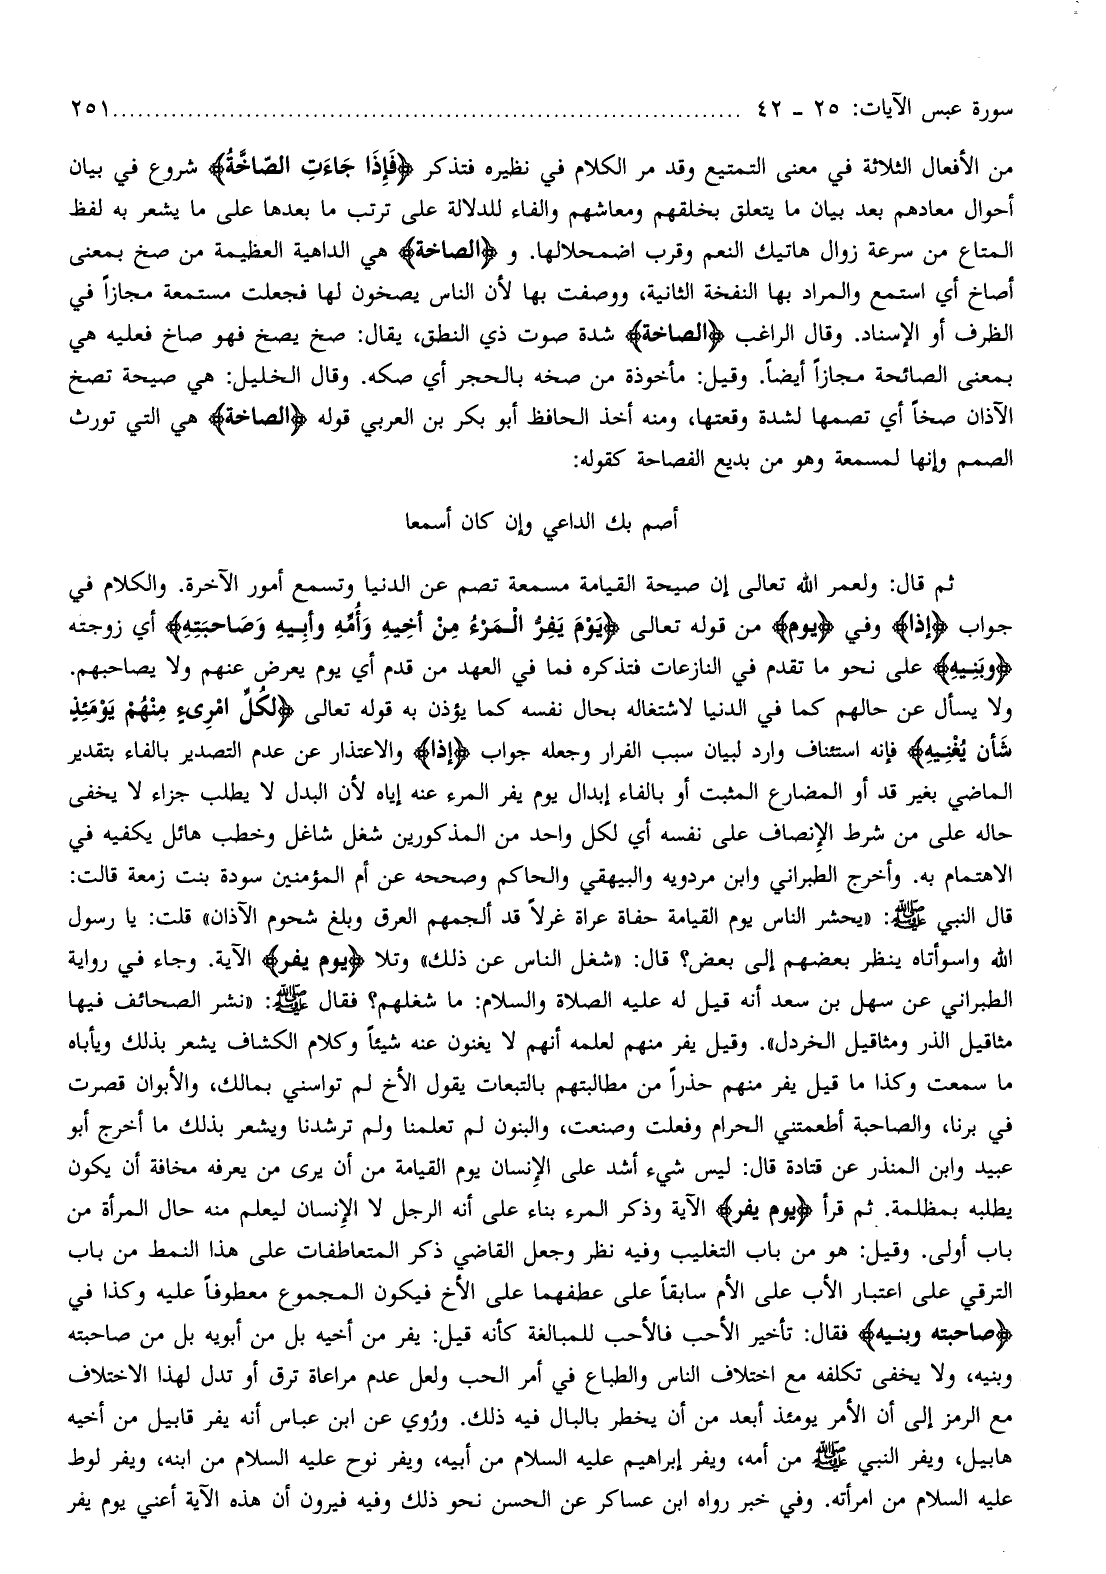 سورة عبس الآيات: ٢٥ ــ ٤٢ ........................................ ٢٥١
من الأفعال الثلاثة في معنى التمتيع وقد مر الكلام في نظيره فتذكر ﴿فَإِذَا جَاءَتِ الصّاخَّةُ﴾ شروع في بيان
أحوال معادهم بعد بيان ما يتعلق بخلقهم ومعاشهم والفاء للدلالة على ترتب ما بعدها على ما يشعر به لفظ
المتاع من سرعة زوال هاتيك النعم وقرب اضمحلالها. و ﴿الصاخة﴾ هي الداهية العظيمة من صخ بمعنى
أصاخ أي استمع والمراد بها النفخة الثانية، ووصفت بها لأن الناس يصخون لها فجعلت مستمعة مجازاً في
الظرف أو الإسناد. وقال الراغب ﴿الصاخة﴾ شدة صوت ذي النطق، يقال: صخ يصخ فهو صاخ فعليه هي
بمعنى الصائحة مجازاً أيضاً. وقيل: مأخوذة من صخه بالحجر أي صكه. وقال الخليل: هي صيحة تصخ
الآذان صخاً أي تصمها لشدة وقعتها، ومنه أخذ الحافظ أبو بكر بن العربي قوله ﴿الصاخة﴾ هي التي تورث
الصمم وإنها لمسمعة وهو من بديع الفصاحة كقوله:
أصم بك الداعي وإن كان أسمعا
ثم قال: ولعمر الله تعالى إن صيحة القيامة مسمعة تصم عن الدنيا وتسمع أمور الآخرة. والكلام في
جواب ﴿إذا﴾ وفي ﴿يوم﴾ من قوله تعالى ﴿يَوْمَ يَفِرُّ الْمَرْءُ مِنْ أخِيهِ وَأُمِّهِ وأبِيهِ وَصَاحبَتِهِ﴾ أي زوجته
﴿وبَنِيهِ﴾ على نحو ما تقدم في النازعات فتذكره فما في العهد من قدم أي يوم يعرض عنهم ولا يصاحبهم.
ولا يسأل عن حالهم كما في الدنيا لاشتغاله بحال نفسه كما يؤذن به قوله تعالى ﴿لكُلِّ امْرِىءٍ مِنْهُمْ يَوْمَئِذٍ
شَأن يُغْنِيهِ﴾ فإنه استئناف وارد لبيان سبب الفرار وجعله جواب ﴿إذا﴾ والاعتذار عن عدم التصدير بالفاء بتقدير
الماضي بغير قد أو المضارع المثبت أو بالفاء إبدال يوم يفر المرء عنه إياه لأن البدل لا يطلب جزاء لا يخفى
حاله على من شرط الإنصاف على نفسه أي لكل واحد من المذكورين شغل شاغل وخطب هائل يكفيه في
الاهتمام به. وأخرج الطبراني وابن مردويه والبيهقي والحاكم وصححه عن أم المؤمنين سودة بنت زمعة قالت:
قال النبي ﷺ: «يحشر الناس يوم القيامة حفاة عراة غرلاً قد ألجمهم العرق وبلغ شحوم الآذان» قلت: يا رسول
الله واسوأتاه ينظر بعضهم إلى بعض؟ قال: «شغل الناس عن ذلك» وتلا ﴿يوم يفر﴾ الآية. وجاء في رواية
الطبراني عن سهل بن سعد أنه قيل له عليه الصلاة والسلام: ما شغلهم؟ فقال ﷺ: «نشر الصحائف فيها
مثاقيل الذر ومثاقيل الخردل». وقيل يفر منهم لعلمه أنهم لا يغنون عنه شيئاً وكلام الكشاف يشعر بذلك ويأباه
ما سمعت وكذا ما قيل يفر منهم حذراً من مطالبتهم بالتبعات يقول الأخ لم تواسني بمالك، والأبوان قصرت
في برنا، والصاحبة أطعمتني الحرام وفعلت وصنعت، والبنون لم تعلمنا ولم ترشدنا ويشعر بذلك ما أخرج أبو
عبيد وابن المنذر عن قتادة قال: ليس شيء أشد على الإنسان يوم القيامة من أن يرى من يعرفه مخافة أن يكون
يطلبه بمظلمة. ثم قرأ ﴿يوم يفر﴾ الآية وذكر المرء بناء على أنه الرجل لا الإنسان ليعلم منه حال المرأة من
باب أولى. وقيل: هو من باب التغليب وفيه نظر وجعل القاضي ذكر المتعاطفات على هذا النمط من باب
الترقي على اعتبار الأب على الأم سابقاً على عطفهما على الأخ فيكون المجموع معطوفاً عليه وكذا في
﴿صاحبته وبنيه﴾ فقال: تأخير الأحب فالأحب للمبالغة كأنه قيل: يفر من أخيه بل من أبويه بل من صاحبته
وبنيه، ولا يخفى تكلفه مع اختلاف الناس والطباع في أمر الحب ولعل عدم مراعاة ترق أو تدل لهذا الاختلاف
مع الرمز إلى أن الأمر يومئذ أبعد من أن يخطر بالبال فيه ذلك. ورُوي عن ابن عباس أنه يفر قابيل من أخيه
هابيل، ويفر النبي ﷺ من أمه، ويفر إبراهيم عليه السلام من أبيه، ويفر نوح عليه السلام من ابنه، ويفر لوط
عليه السلام من امرأته. وفي خبر رواه ابن عساكر عن الحسن نحو ذلك وفيه فيرون أن هذه الآية أعني يوم يفر